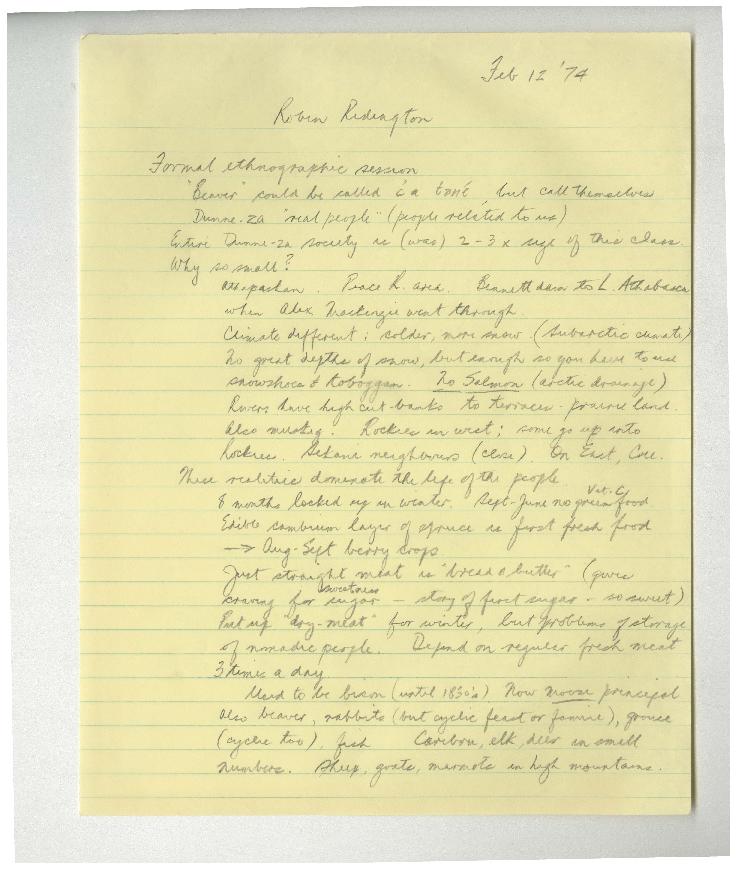 Feb 12 '74
Robin Ridington
Formal ethnographic session
"Beaver" could be called but call themselves
Dunne-za "real people" (people related to us)
Entire Dunne-za society is (was) 2-3 x size of this class.
Why so small?
Athapaskan. Peace R. area. Bennett dam to L. Athabasca
when Alex Mackenzie went through.
Climate different: colder, more snow. (Subarctic climate)
No great depths of snow, but enough so you have to use
snowshoes & toboggan. No Salmon (arctic drainage)
Rivers have high cut-banks to terraces - prairie land.
Also muskeg. Rockies in west; some go up into
Rockies. Sekani neighbours (close). On East, Cree.
These realities dominate the life of the people
8 months locked up in winter. Sept-June no green food
Vit. C
Edible cambium layer of spruce is first fresh food
—> Aug-Sept berry crops
Just straight meat is "bread & butter" (gives
sweetness
craving for sugar - story of first sugar - so sweet)
Put up "dry-meat" for winter, but problems of storage
of nomadic people. Depend on regular fresh meat
3 times a day
Used to be bison (until 1830's) Now moose principal
also beaver, rabbits (but cyclic feast or famine), grouse
(cyclic too), fish Caribou, elk, deer in small
numbers. Sheep, goats, marmots in high mountains.